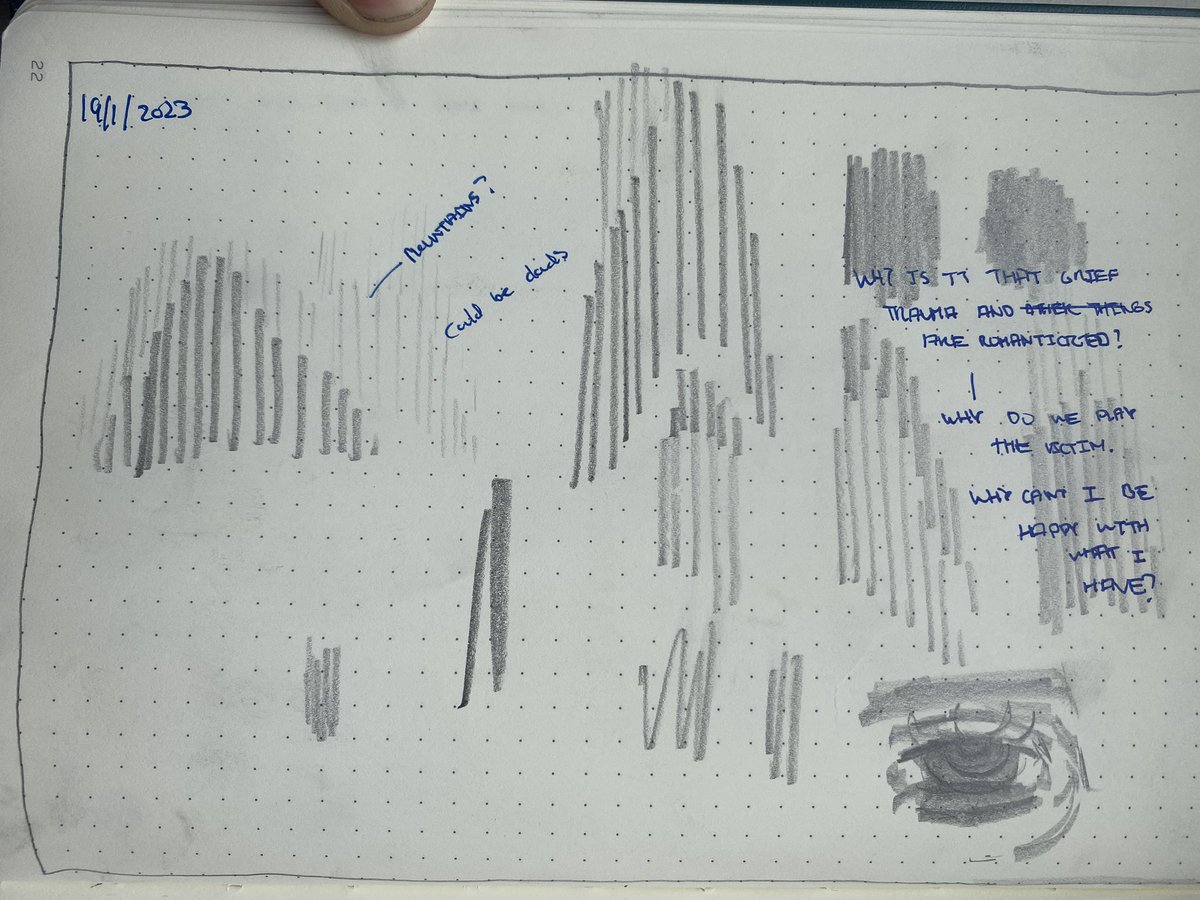 22
19/1/2023
MOUNTAINS?
Could be clouds
WHY IS IT THAT GRIEF
TRAUMA AND OTHER THINGS
ARE ROMANTICIZED?
WHY DO WE PLAY
THE VICTIM.
WHY CANT I BE
HAPPY WITH
WHAT I
HAVE?